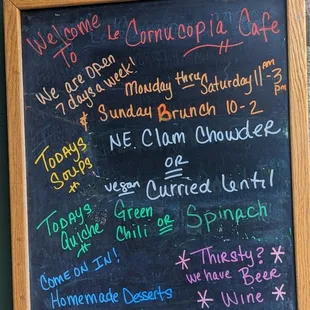 Welcome To Le Cornucopia Cafe
We are open 7 days a week!
Monday thru Saturday 11am-3pm
& Sunday Brunch 10-2
Todays Soups
NE. Clam Chowder
OR
vegan Curried Lentil
Todays Quiche
Green Chili OR Spinach
Come on in!
Homemade Desserts
* Thirsty? *
we have Beer
* Wine *